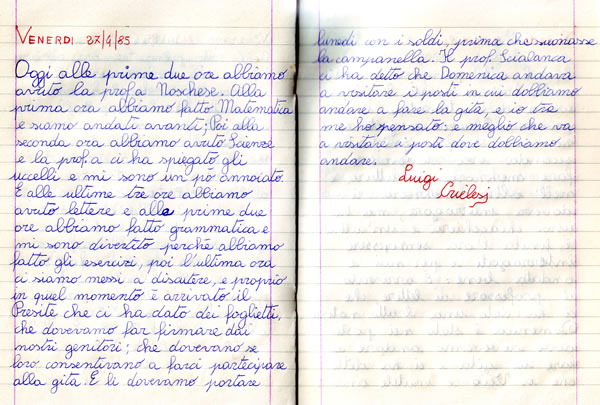 VENERDI 27/4/85
Oggi alle prime due ore abbiamo
avuto la prof.a Noschese. Alla
prima ora abbiamo fatto Matematica
e siamo andati avanti; Poi alla
seconda ora abbiamo avuto Scienze
e la prof.a ci ha spiegato gli
uccelli e mi sono un pò annoiato.
E alle ultime tre ore abbiamo
avuto lettere e alle prime due
ore abbiamo fatto grammatica e
mi sono divertito perché abbiamo
fatto gli esercizi, poi l'ultima ora
ci siamo messi a discutere, e proprio
in quel momento è arrivato il
Preside che ci ha dato dei foglietti,
che dovevamo far firmare dai
nostri genitori; che dovevano se
loro consentivano a farci partecipare
alla gita. E li dovevamo portare
lunedì con i soldi, prima che suonasse
la campanella. Il prof. Scialanca
ci ha detto che Domenica andava
a visitare i posti in cui dobbiamo
andare a fare la gita, e io tra
me ho pensato: e meglio che va
a visitare i posti dove dobbiamo
andare.
Luigi